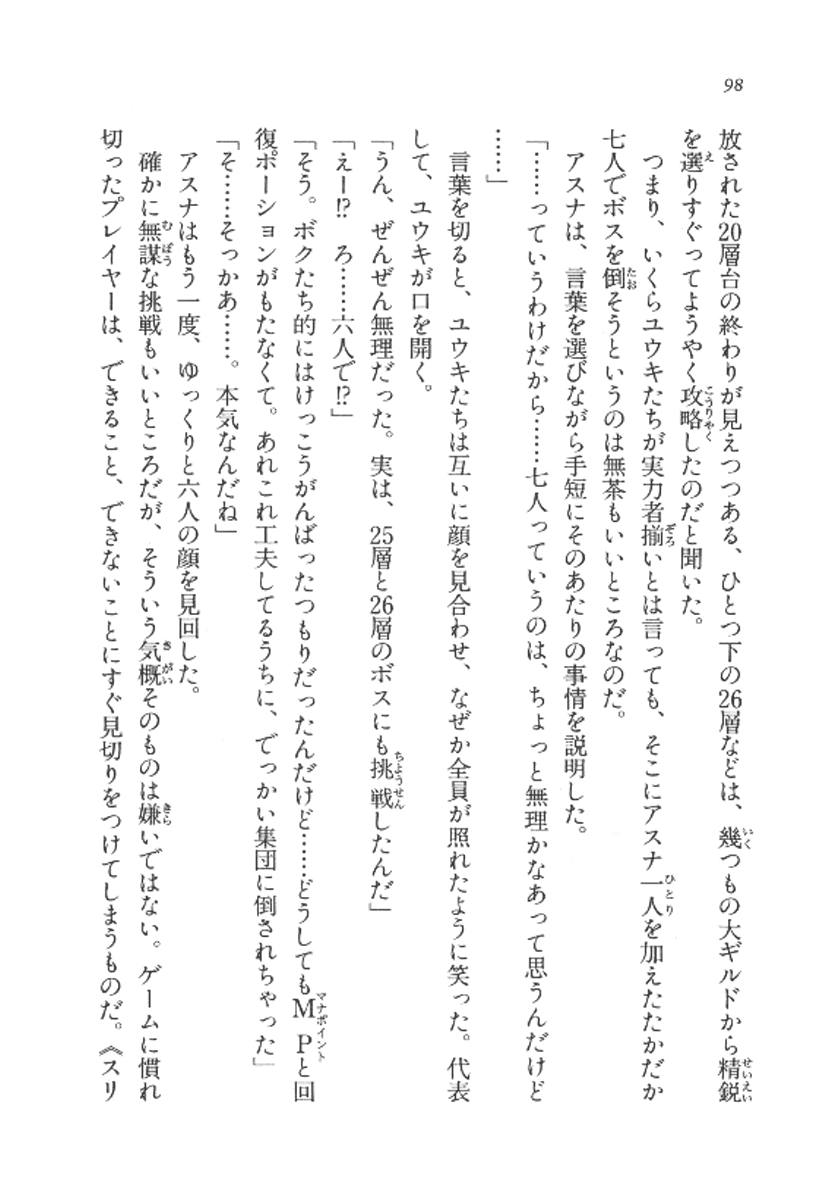 98
放された20層台の終わりが見えつつある、ひとつ下の26層などは、幾つもの大ギルドから精鋭
を選りすぐってようやく攻略したのだと聞いた。
つまり、いくらユウキたちが実力者揃いとは言っても、そこにアスナ一人を加えたたかだか
七人でボスを倒そうというのは無茶もいいところなのだ。
アスナは、言葉を選びながら手短にそのあたりの事情を説明した。
「……っていうわけだから……七人っていうのは、ちょっと無理かなあって思うんだけど
……」
言葉を切ると、ユウキたちは互いに顔を見合わせ、なぜか全員が照れたように笑った。代表
して、ユウキが口を開く。
「うん、ぜんぜん無理だった。実は、25層と26層のボスにも挑戦したんだ」
「えー!?　ろ……六人で!?」
「そう。ボクたち的にはけっこうがんばったつもりだったんだけど……どうしてもMPと回
復ポーションがもたなくて。あれこれ工夫してるうちに、でっかい集団に倒されちゃった」
「そ……そっかあ……。本気なんだね」
アスナはもう一度、ゆっくりと六人の顔を見回した。
確かに無謀な挑戦もいいところだが、そういう気概そのものは嫌いではない。ゲームに慣れ
切ったプレイヤーは、できること、できないことにすぐ見切りをつけてしまうものだ。《スリ